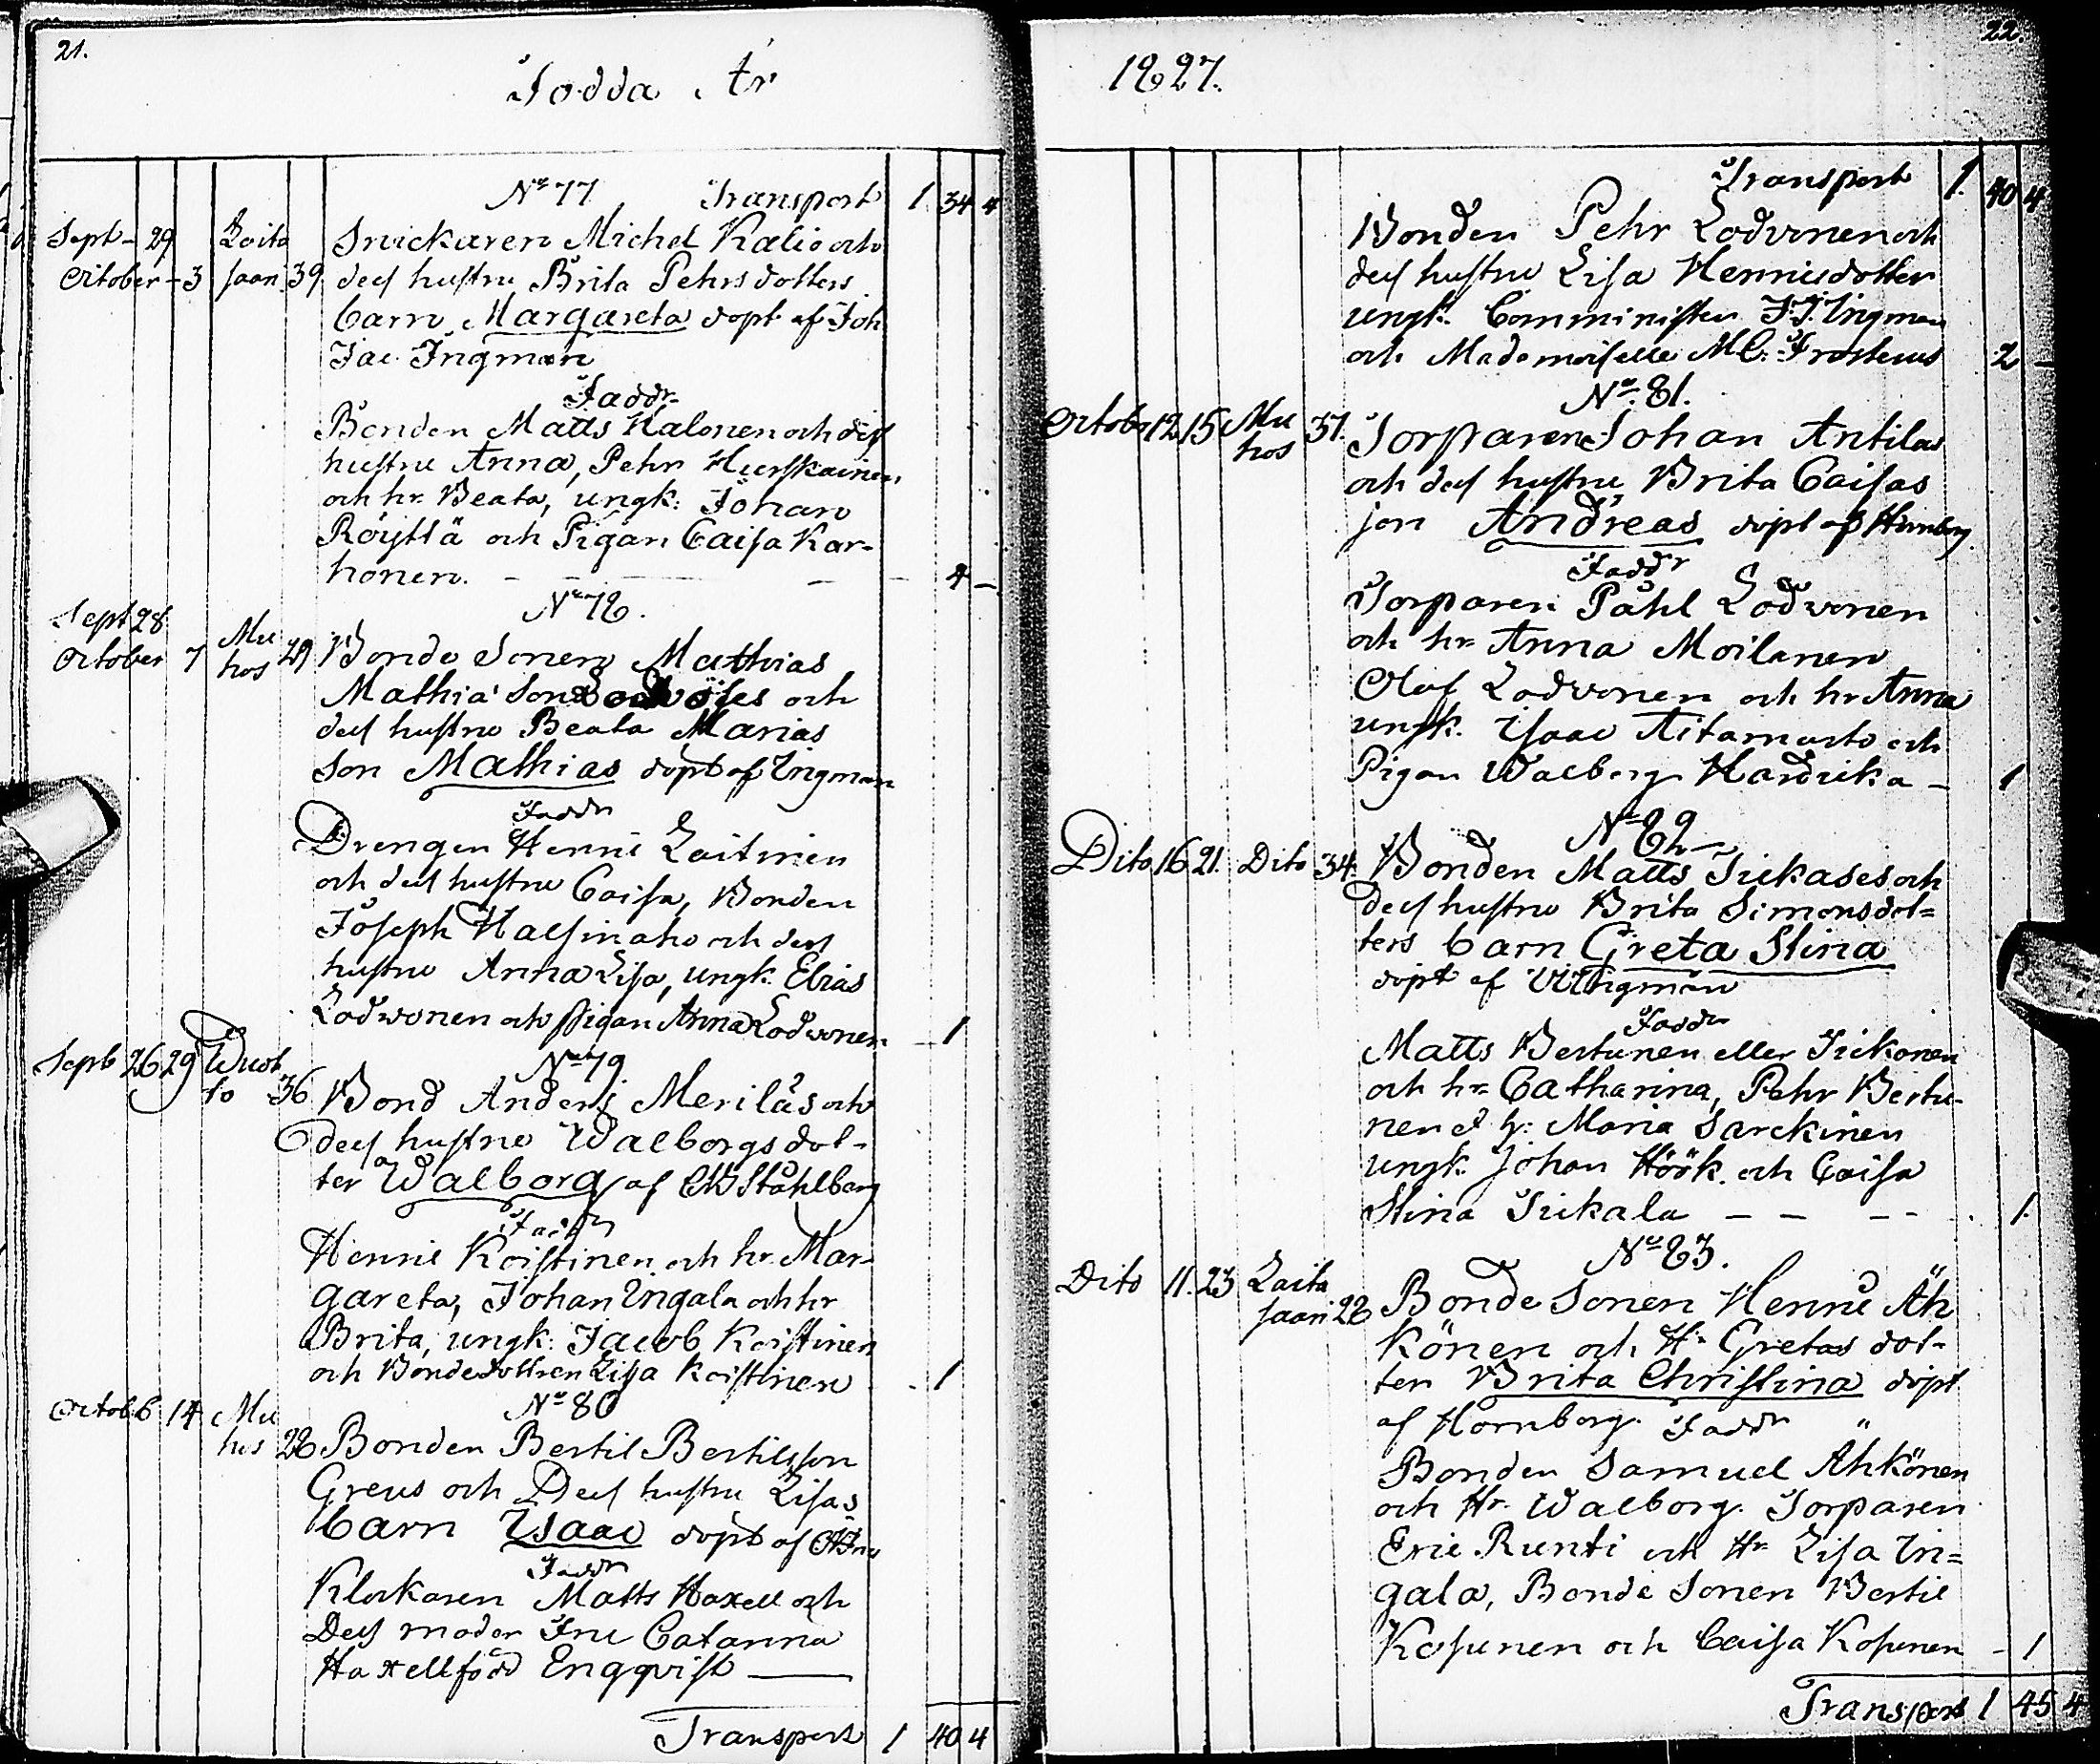 21.
Födda År
No 77 Transport 1 34 4
Sept - 29 Laita Snickaren Michel Kalio och
October - 3 saari 39 dess hustru Brita Pehrsdotters
barn Margareta döpt af Joh
Jac Ingman
Faddr
Bonden Matts Halonen och dess
hustru Anna, Pehr Hurskainen
och hr Beata, ungk: Johan
Röyttä och Pigan Caisa Kar-
honen. - - - - 4 -
No 78.
Sept 28
October 7 Mu hos 29 Bonde Sonen Mathias
Mathia' son och
dess hustru Beata Marias
Son Mathias döpt af Ingman
Faddr
Drengen Henric Laitinen
och dess hustru Caisa, Bonden
Joseph Halsinaho och dess
hustru Anna Lisa, ungk. Elias
Lodvonen och pigan Anna Lodvonen - 1
No 79
Sept 26 29 Wuot
to 36 Bond Anders Meriläs och
dess hustru Walborgs dot-
ter Walborg af Ståhlberg
Faddr
Henric Koistinen och hr. Mar-
gareta, Johan Ingala och hr
Brita, ungk: Jacob Koistinen
och Bondedottren Lisa Koistinen - 1
No 80
Octob 6 14 Mu
hos 28 Bonden Bertil Bertilsson
Greus och Dess hustru Lisas
barn Isaac döpt af
Faddr
Klockaren Matts Haxell och
Dess moder Fru Catarina
Haxell född Enqqvist —
Transport 1 40 4
1827.
22.
Transport 1. 40 4
Bonden Pehr Lodvonen och
dess hustru Lisa Hennicsdotter
ungk. Comministern J.J. Ingman
och Mademoiselle M C. Frosterus 2 -
No. 81.
Octobr 12 15 Mu
hos 37. Torparen Johan Antilas
och dess hustru Brita Caisas
son Andreas döpt af Hornborg
Faddr
Torparen Påhl Lodvonen
och hr Anna Moilanen
Olof Lodvonen och hr Anna
ungk. Isaac Aitamurto och
Pigan Walborg Hardrika - 1
No 82
Dito 16 21. Dito 34. Bonden Matts Tickases och
dess hustru Brita Simonsdot=
ters barn Greta Stina
döpt af Ingman
Faddr
Matts Bertunen eller Tickonen
och hr Catharina, Pehr Bertu-
nen et h: Maria Sarckinen
ungk. Johan Höök. och Caisa
Stina Tickala - - - - 1.
No 83.
Dito 11. 23 Laita
saari 28 Bonde Sonen Henric Äh
könen och Hr Gretas dot-
ter Brita Christina döpt
af Hornborg. Faddr
Bonden Samuel Ähkönen
och Hr Walborg. Torparen
Eric Runti och Hr Lisa In=
gala, Bonde Sonen Bertil
Kosunen och Caisa Kosunen - 1
Transport 1 45 4